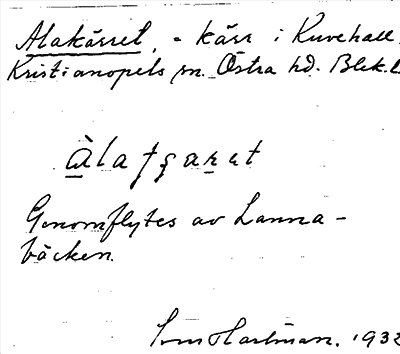 Alakärret, - kärr i Kuvehall.
Kristianopels sn. Östra hd. Blek. l
àlatçaret
Genomflytes av Lanna-
bäcken.
Hartman. 1932